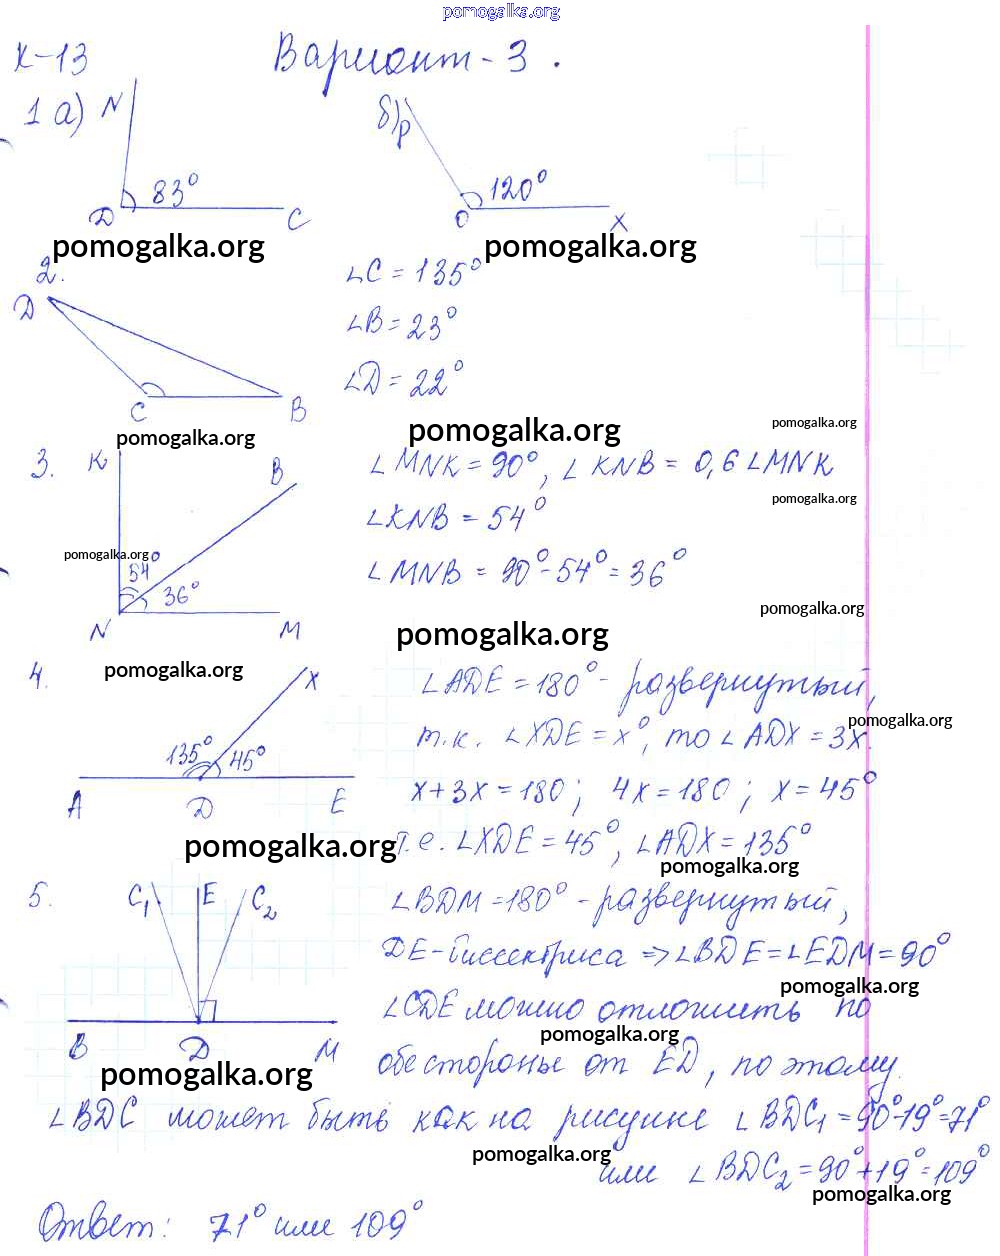 pomogalka.org
К-13 Вариант-3.
1 а) N 83° D C
б) P 120° O X
pomogalka.org pomogalka.org
2. D C B
∠C = 135°
∠B = 23°
∠D = 22°
pomogalka.org pomogalka.org pomogalka.org
3. K B 54° 36° N M
∠MNK = 90°, ∠KNB = 0,6 ∠MNK
pomogalka.org
∠KNB = 54°
pomogalka.org
∠MNB = 90° - 54° = 36°
pomogalka.org
pomogalka.org
pomogalka.org
4. X 135° 45° A D E
∠ADE = 180° - развернутый,
pomogalka.org
т.к. ∠XDE = x°, то ∠ADX = 3x.
x + 3x = 180; 4x = 180; x = 45°
т.е. ∠XDE = 45°, ∠ADX = 135°
pomogalka.org pomogalka.org
5. C₁ E C₂ B D M
∠BDM = 180° - развернутый,
DE - биссектриса => ∠BDE = ∠EDM = 90°
pomogalka.org
∠CDE можно отложить по
pomogalka.org
обе стороны от ED, по этому
pomogalka.org
∠BDC может быть как на рисунке ∠BDC₁ = 90°-19°=71°
pomogalka.org
или ∠BDC₂ = 90°+19°=109°
pomogalka.org
Ответ: 71° или 109°